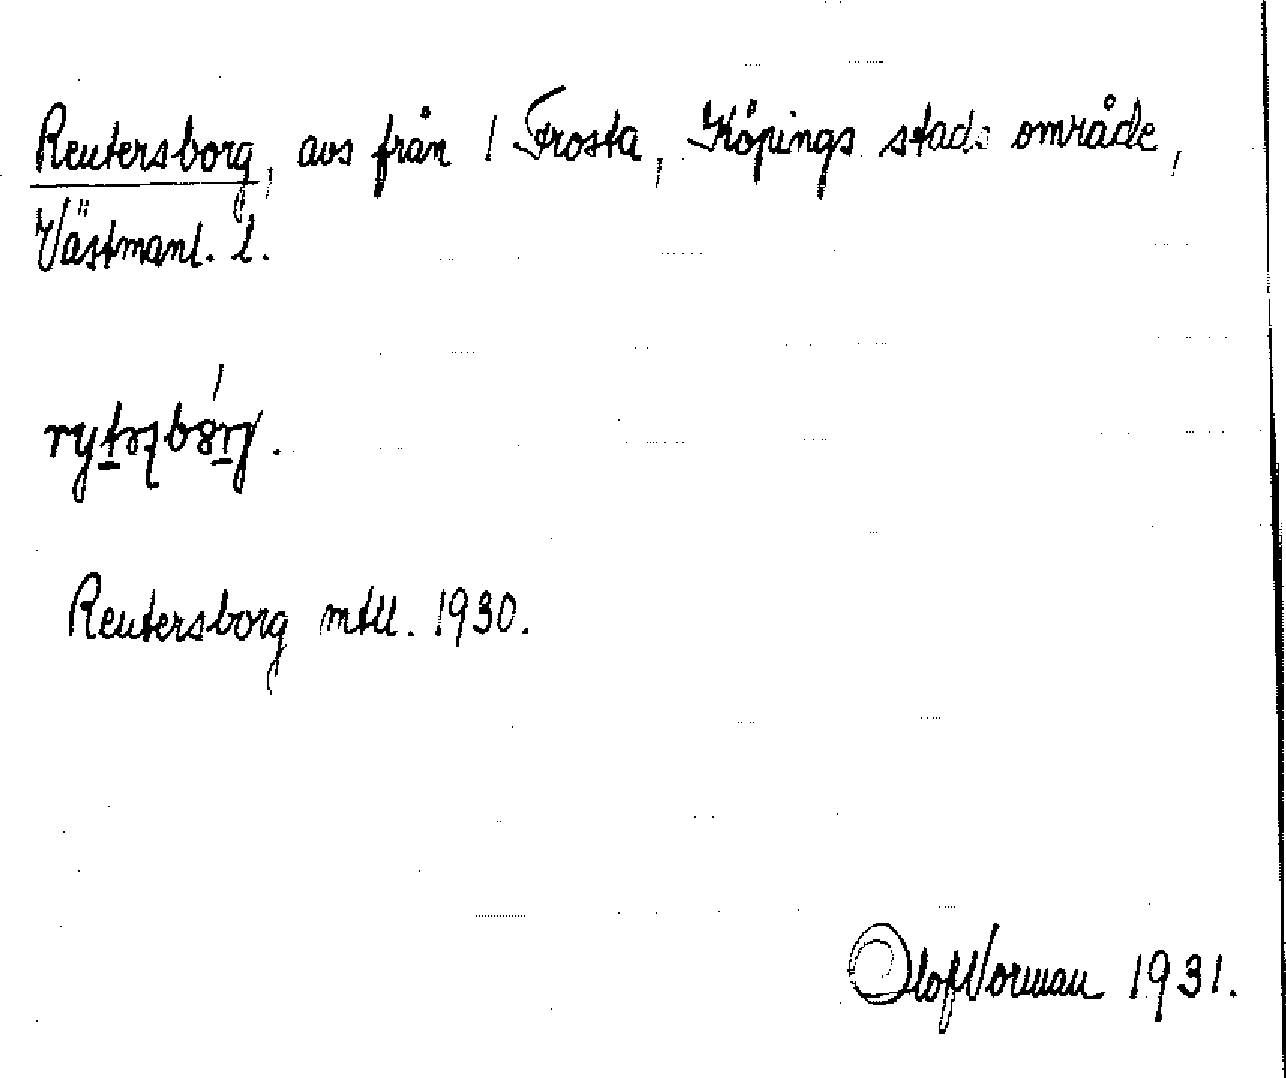 Reutersborg, avs från 1 Frosta, Köpings stads område,
Västmanl. l.
Reutersborg mtll. 1930.
Olof Norman 1931.